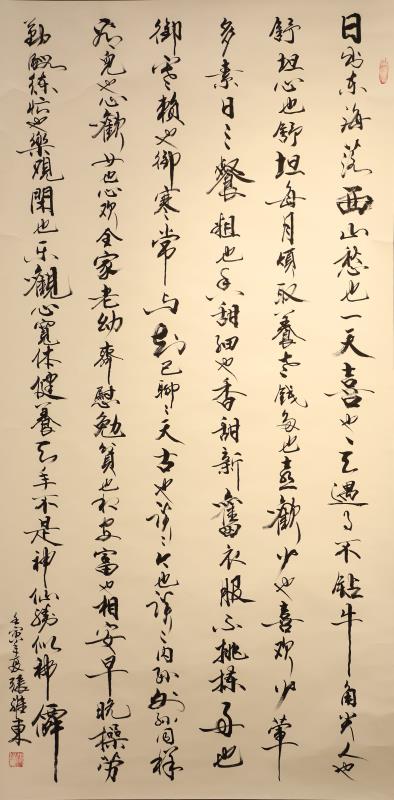 日出东海落西山愁也一天喜也一天遇事不钻牛角尖人也
舒坦心也舒坦每月领取养老钱多也喜歡少也喜欢少荤
多素日三餐粗也香甜细也香甜新舊衣服不挑揀好也
御寒赖也御寒常与知己聊〻天古也談〻今也談〻内孙外孙同样
看兒也心歡女也心欢全家老幼齊慰勉貧也相安富也相安早晚操劳
勤鍛炼忙也樂观閑也乐觀心宽体健養天年不是神仙勝似神僊
壬寅年夏張維東